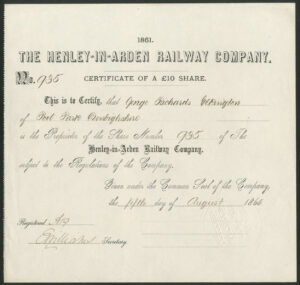 1861.
THE HENLEY-IN-ARDEN RAILWAY COMPANY.
No. 935
CERTIFICATE OF A £10 SHARE.
This is to Certify, that George Richards Elkington
of Denbighshire
is the Proprietor of the Share Number 935 of The
Henley-in-Arden Railway Company,
subject to the Regulations of the Company.
Given under the Common Seal of the Company,
the fifth day of August 186
Registered
Secretary